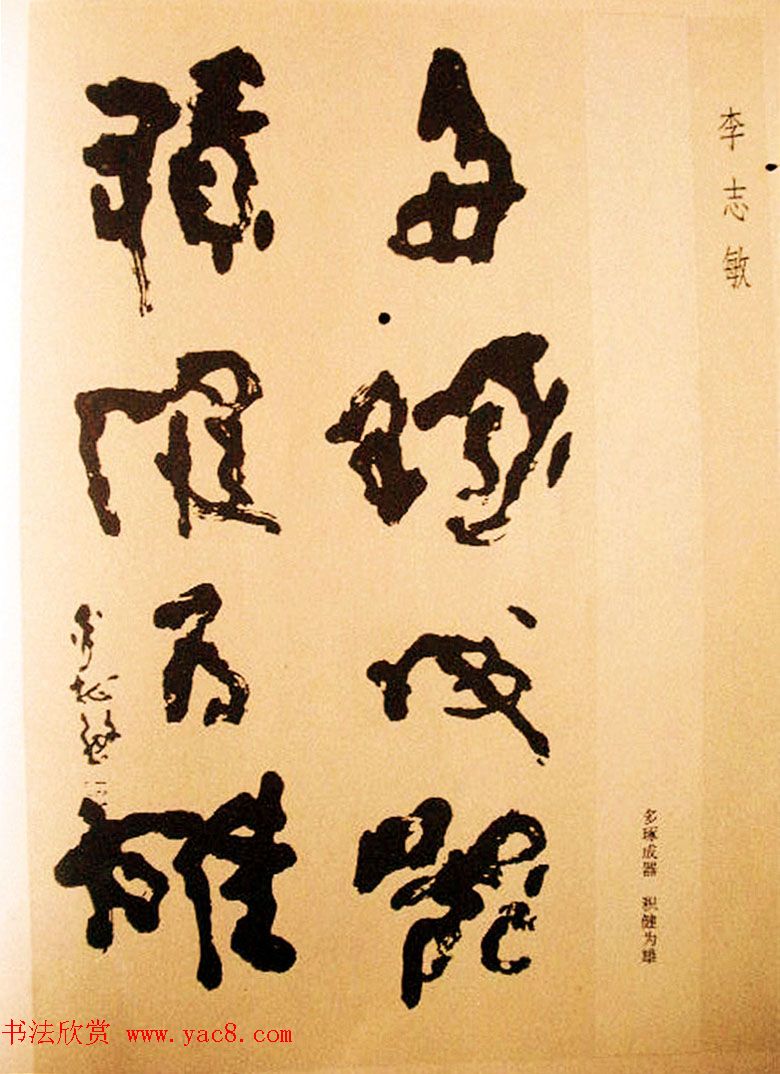 李志敏
多琢成器 积健为雄
多琢成器
積健为雄
李志敏
书法欣赏 www.yac8.com